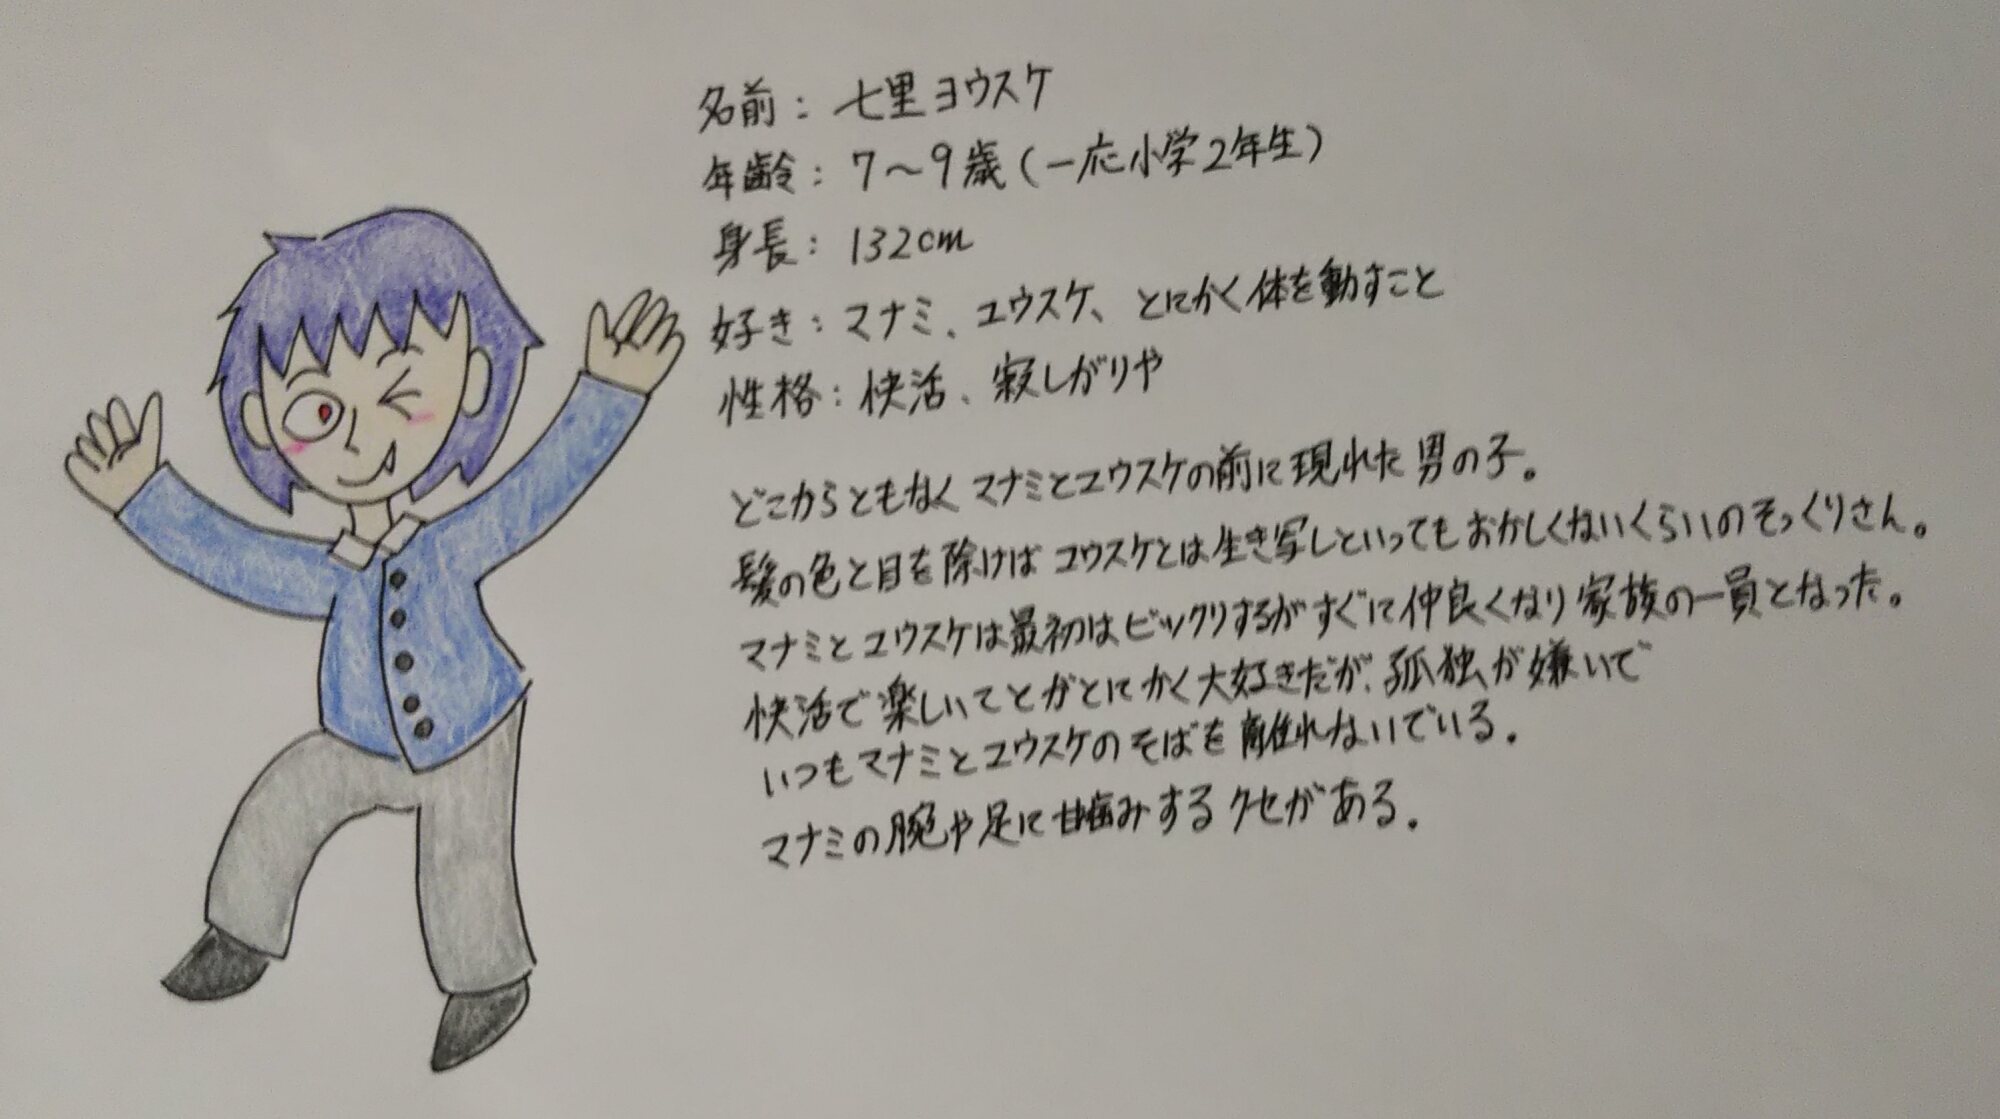 名前：七里ヨウスケ
年齢：7〜9歳（一応小学2年生）
身長：132cm
好き：マナミ、ユウスケ、とにかく体を動すこと
性格：快活、寂しがりや
どこからともなくマナミとユウスケの前に現れた男の子。
髪の色と目を除けばユウスケとは生き写しといってもおかしくないくらいのそっくりさん。
マナミとユウスケは最初はビックリするがすぐに仲良くなり家族の一員となった。
快活で楽しいことがとにかく大好きだが、孤独が嫌いで
いつもマナミとユウスケのそばを離れないでいる。
マナミの腕や足に甘噛みするクセがある。